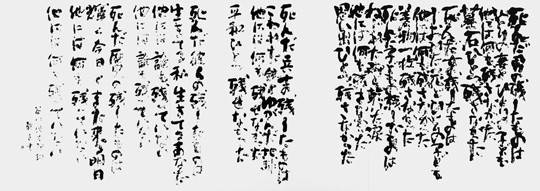 死んだ男の残したものは
ひとりの妻とひとりの子ども
他には何も残さなかった
墓石ひとつ残さなかった
死んだ女の残したものは
しおれた花とひとりの子ども
他には何も残さなかった
着もの一枚残さなかった
死んだ子どもの残したものは
ねじれた脚と乾いた涙
他には何も残さなかった
思い出ひとつ残さなかった
死んだ兵士の残したものは
こわれた銃とゆがんだ地球
他には何も残せなかった
平和ひとつ残せなかった
死んだ彼らの残したものは
生きてる私生きてるあなた
他には誰も残っていない
他には誰も残っていない
死んだ歴史の残したものは
輝く今日とまた来る明日
他には何も残っていない
他には何も残っていない